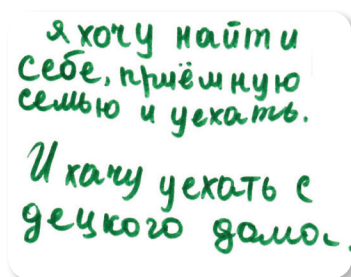 я хочу найти
себе, приёмную
семью и уехать.
И хачу уехать с
децкого дома.